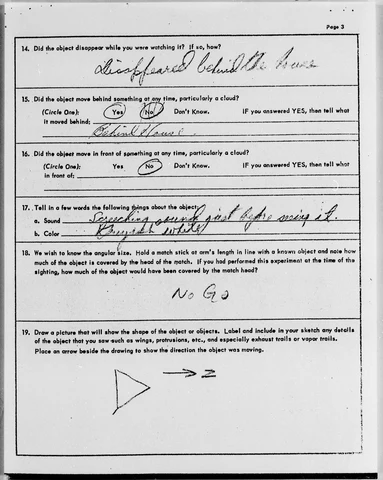 Page 3
14. Did the object disappear while you were watching it? If so, how?
Disappeared behind the house
15. Did the object move behind something at any time, particularly a cloud?
(Circle One): Yes No Don't Know. IF you answered YES, then tell what
it moved behind:
Behind House.
16. Did the object move in front of something at any time, particularly a cloud?
(Circle One): Yes No Don't Know. IF you answered YES, then tell what
in front of:
17. Tell in a few words the following things about the object:
a. Sound Screeching sound just before seeing it.
b. Color Grayish white
18. We wish to know the angular size. Hold a match stick at arm's length in line with a known object and note how
much of the object is covered by the head of the match. If you had performed this experiment at the time of the
sighting, how much of the object would have been covered by the match head?
No Go
19. Draw a picture that will show the shape of the object or objects. Label and include in your sketch any details
of the object that you saw such as wings, protrusions, etc., and especially exhaust trails or vapor trails.
Place an arrow beside the drawing to show the direction the object was moving.